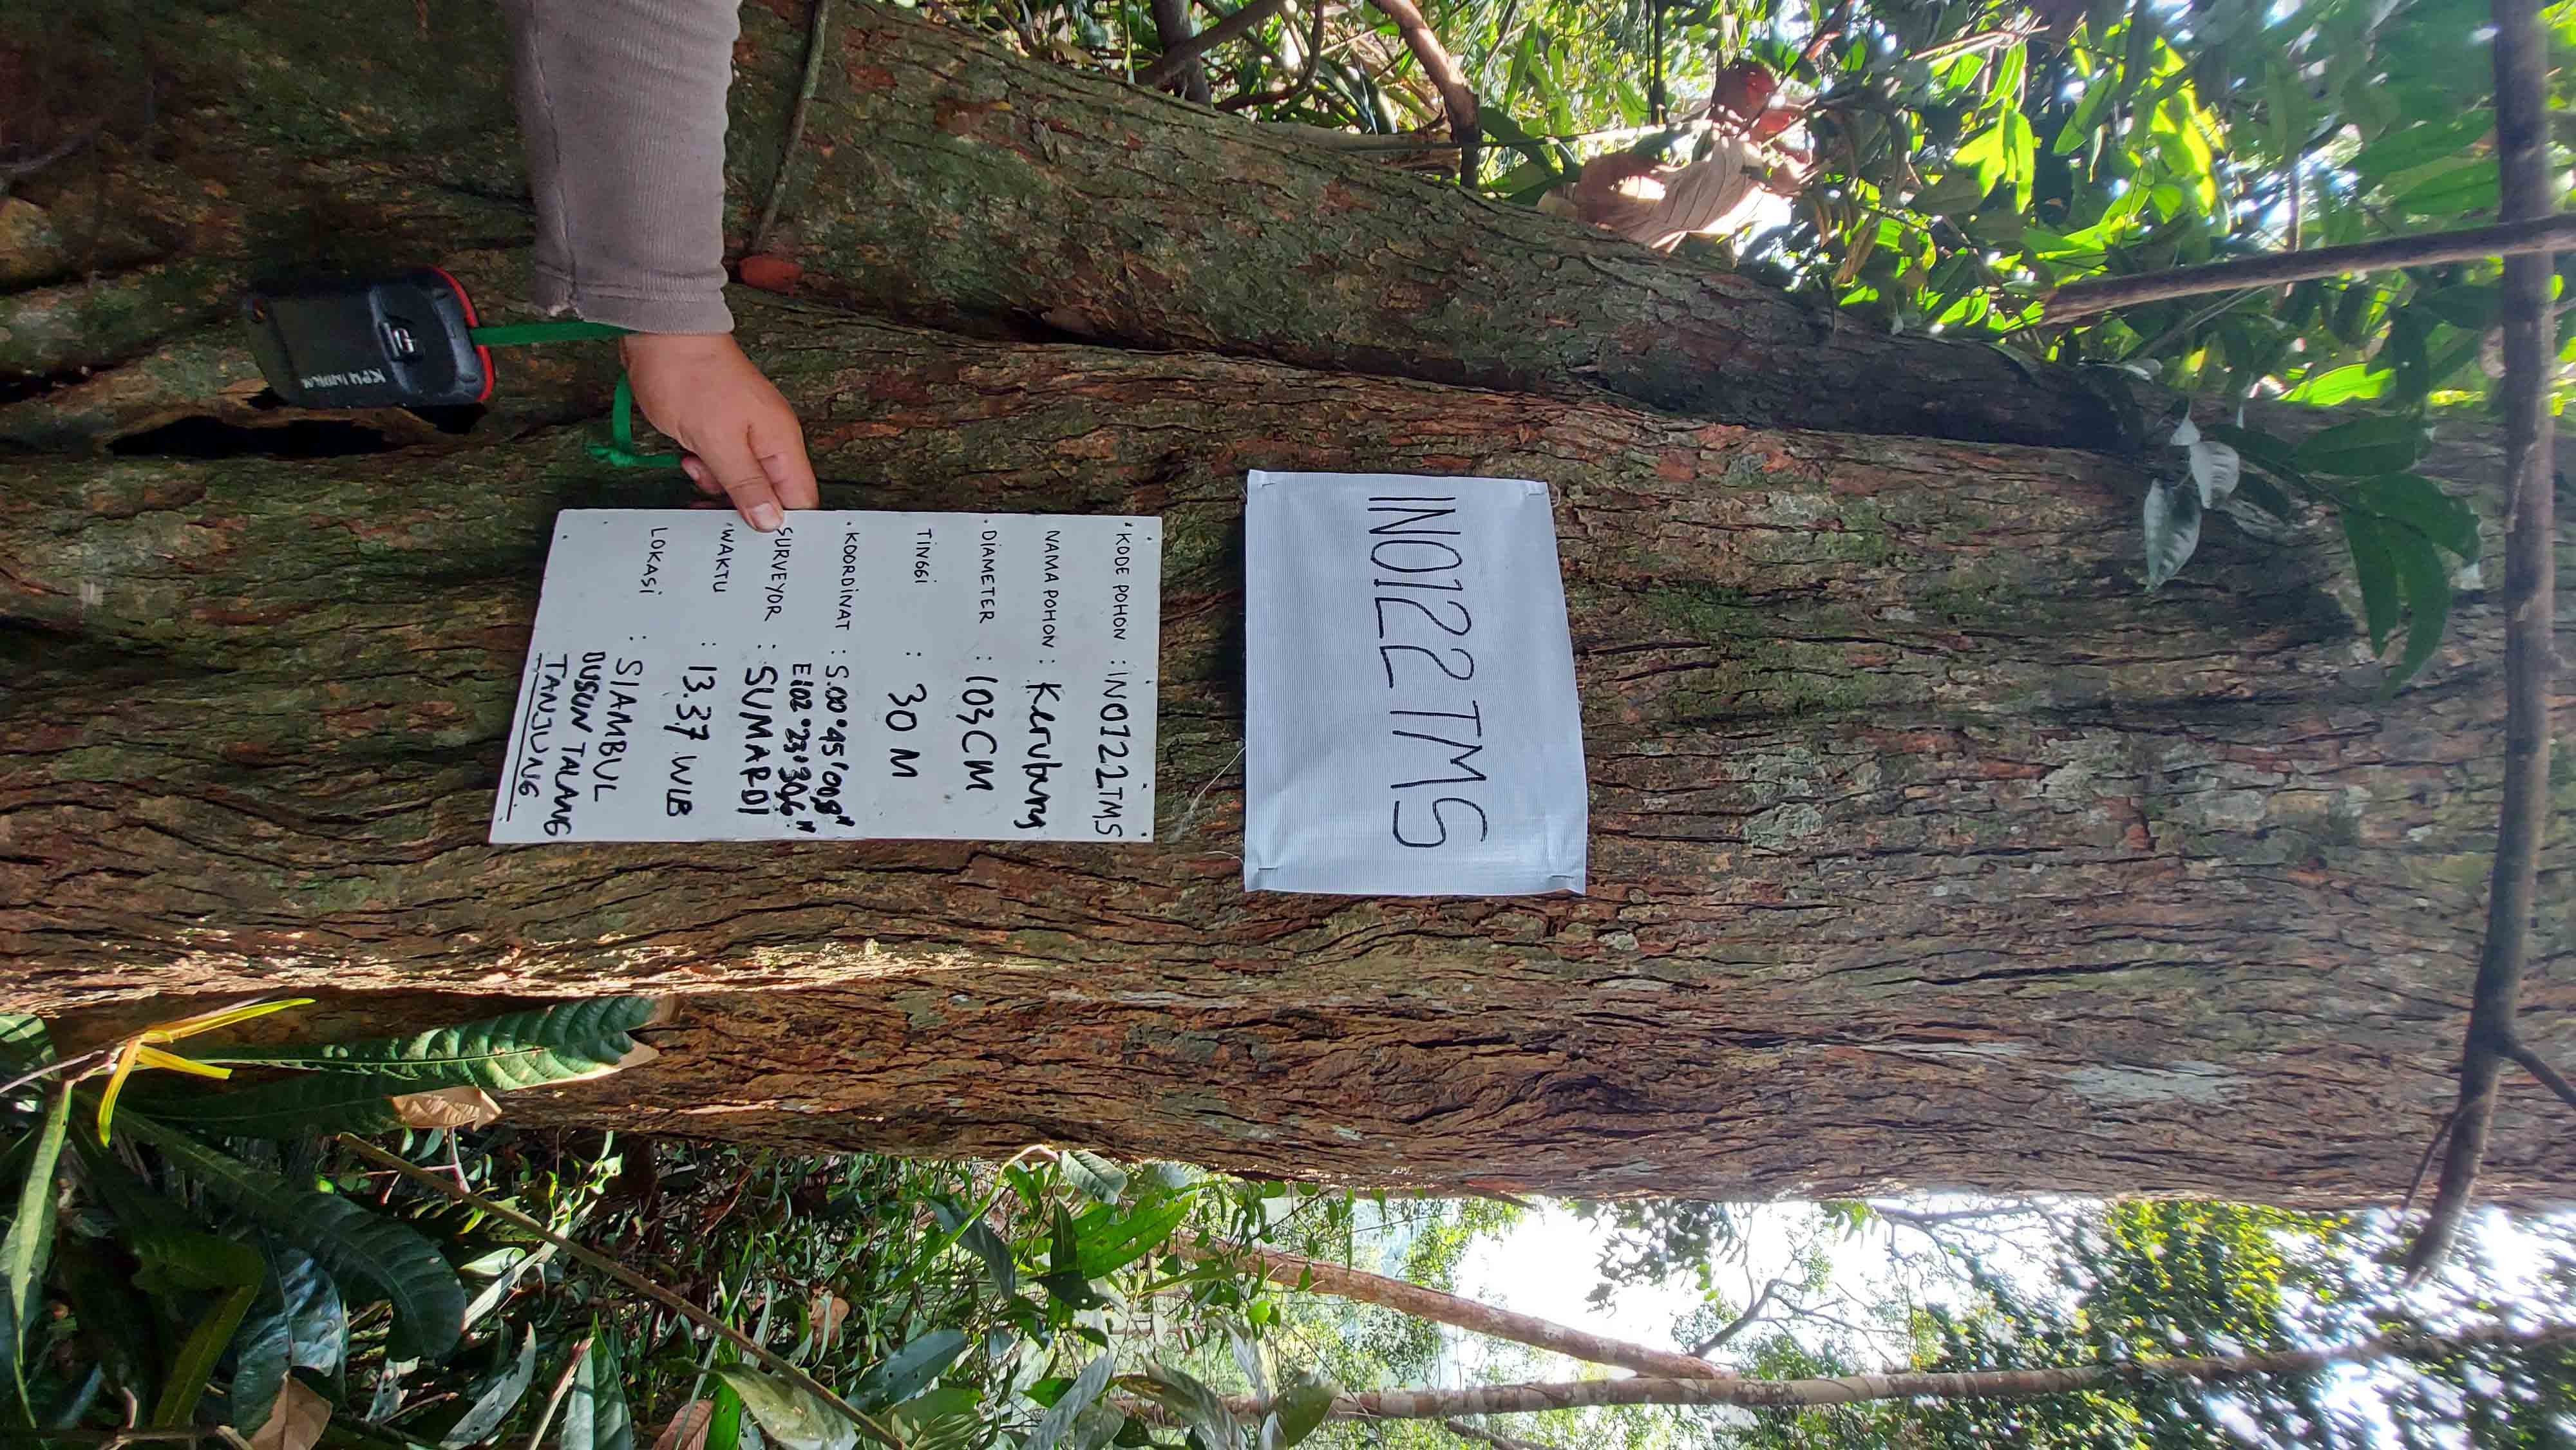 IN0122TMS
KODE POHON : IN0122TMS
NAMA POHON : Kerubung
DIAMETER : 103 CM
TINGGI : 30 M
KOORDINAT : S.00°45'00,8"
E102°23'30,6"
SURVEYOR : SUMARDI
WAKTU : 13.37 WIB
LOKASI : SIAMBUL
DUSUN TALANG
TANJUNG.